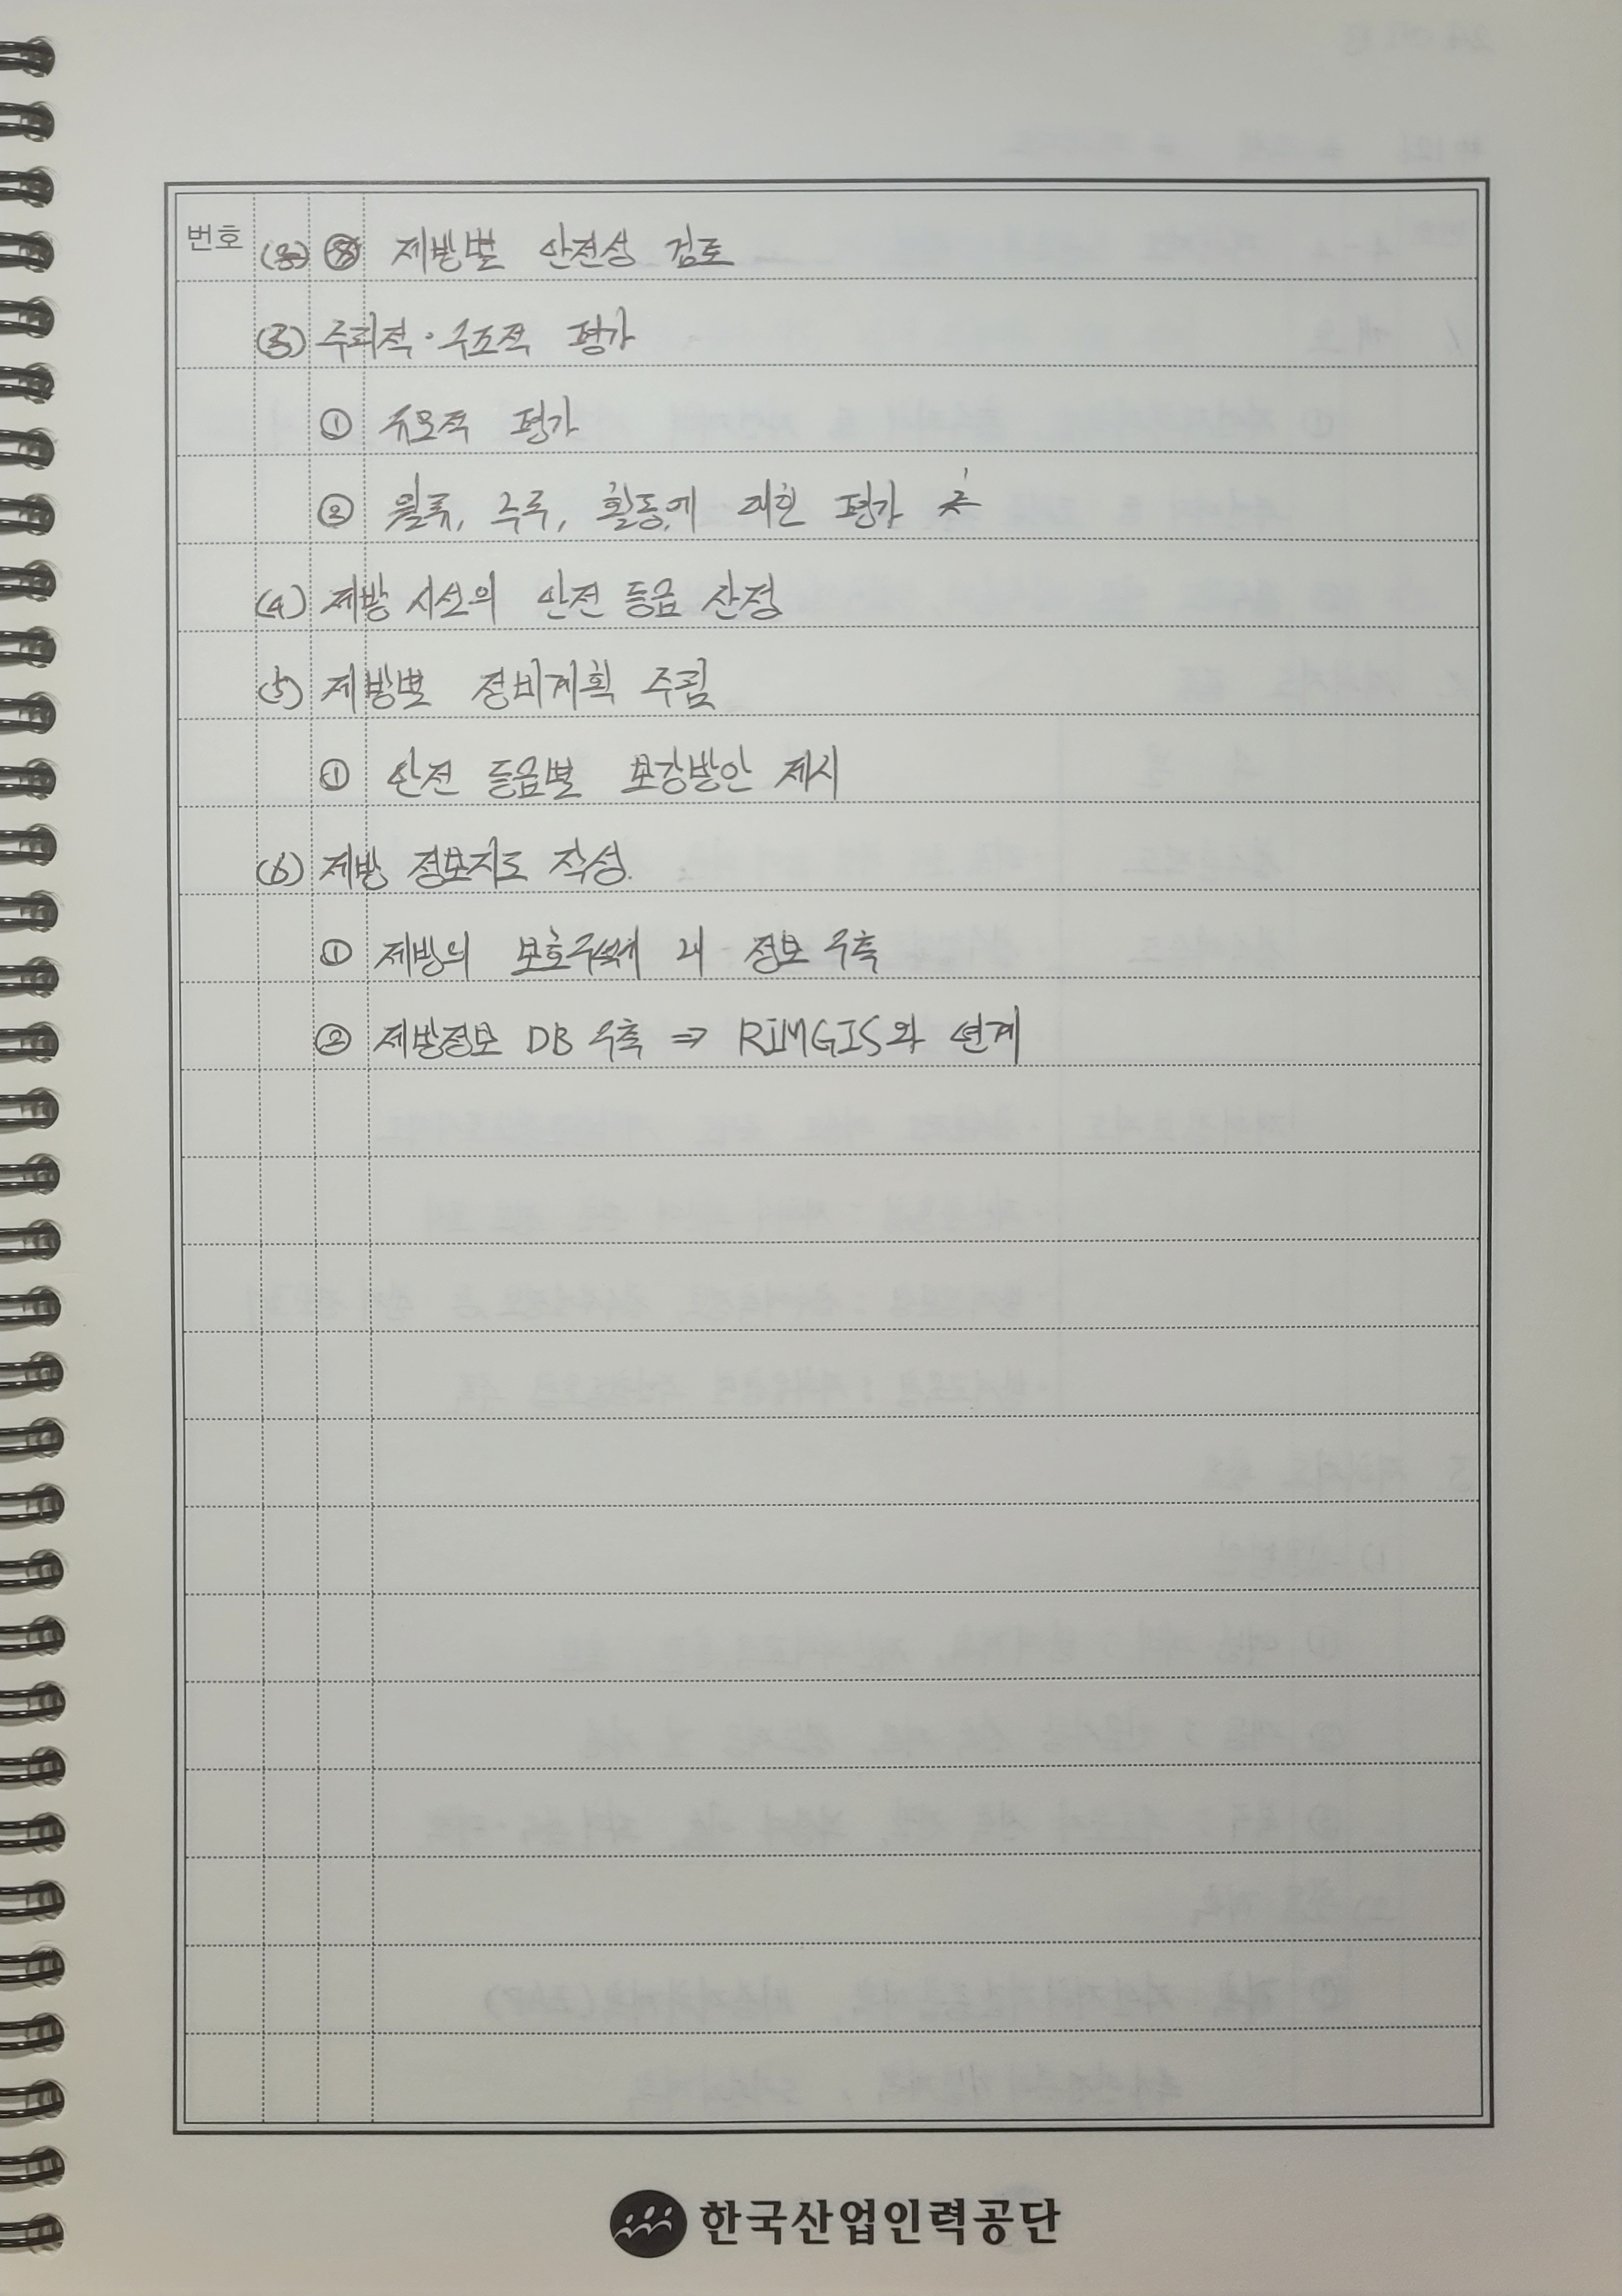 번호 ③ 제방별 안전성 검토
(3) 수리적·구조적 평가
① 수문적 평가
② 월류, 누수, 활동에 대한 평가
(4) 제방 시설의 안전 등급 산정
(5) 제방별 정비계획 수립
① 안전 등급별 보강방안 제시
(6) 제방 정보지도 작성.
① 제방의 보호구역 내 정보 구축
② 제방정보 DB 구축 ⇒ RIMGIS와 연계
한국산업인력공단